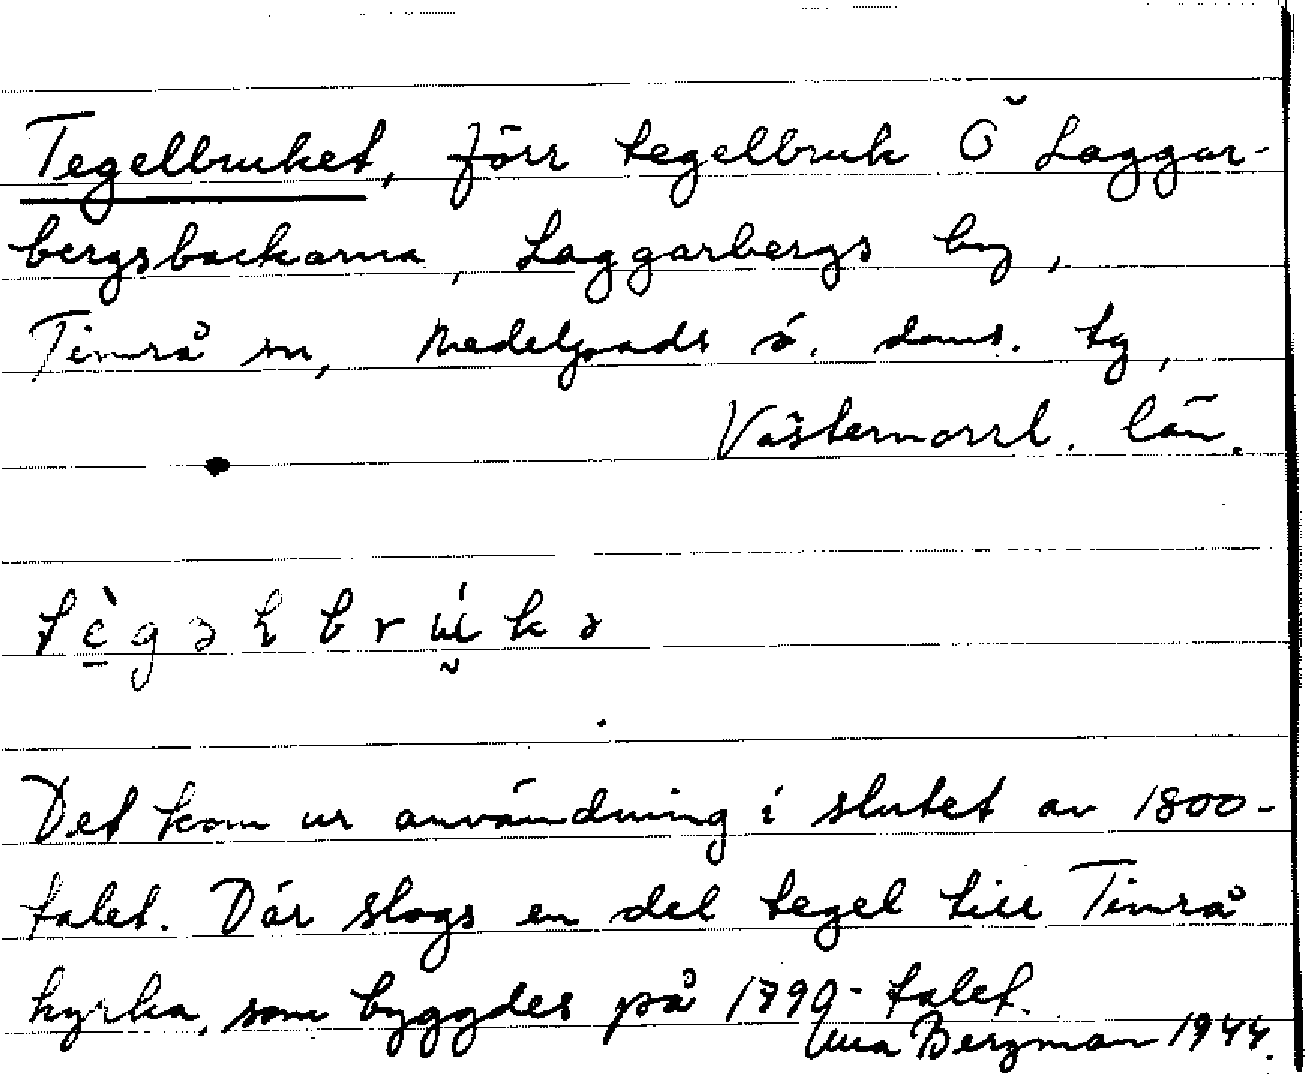 Tegelbruket, förr tegelbruk Ö Laggar-
bergsbackarna, Laggarbergs by,
Timrå sn, Medelpads ö. doms. tg,
Västernorrl. län.
tègəlbrúkə
Det kom ur användning i slutet av 1800-
talet. Där slogs en del tegel till Timrå
kyrka, som byggdes på 1790-talet.
Bergman 1944.